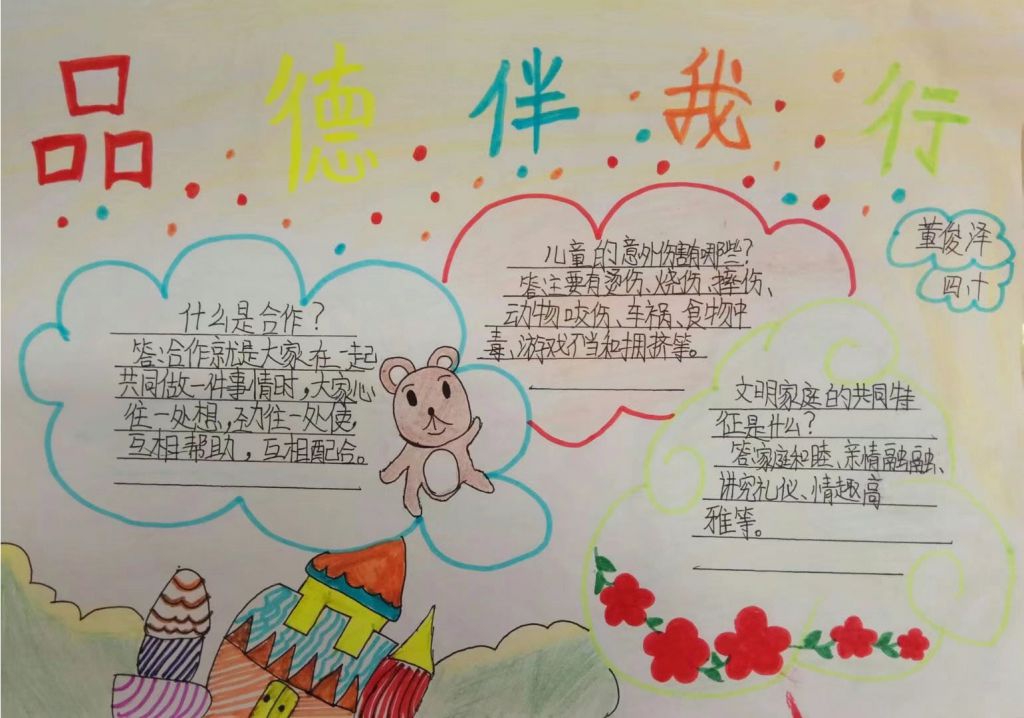 品德伴我行
董俊泽
四.十
什么是合作?
答:合作就是大家在一起
共同做一件事情时,大家心
往一处想,劲往一处使,
互相帮助,互相配合。
儿童的意外伤害有哪些?
答:主要有烫伤、烧伤、摔伤、
动物咬伤、车祸、食物中
毒、游戏不当和拥挤等。
文明家庭的共同特
征是什么?
答:家庭和睦、亲情融融、
讲究礼仪、情趣高
雅等。